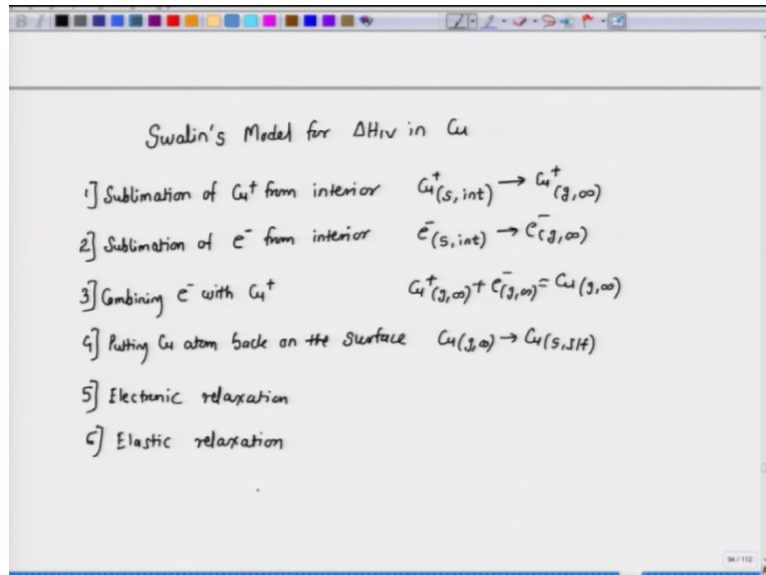 Swalin's Model for ΔH1v in Cu
1] Sublimation of Cu⁺ from interior Cu⁺(s, int) → Cu⁺(g,∞)
2] Sublimation of e⁻ from interior e⁻(s, int) → e⁻(g,∞)
3] Combining e⁻ with Cu⁺ Cu⁺(g,∞) + e⁻(g,∞) = Cu (g,∞)
4] Putting Cu atom back on the surface Cu(g,∞) → Cu(s,slf)
5] Electronic relaxation
6] Elastic relaxation
94 / 112